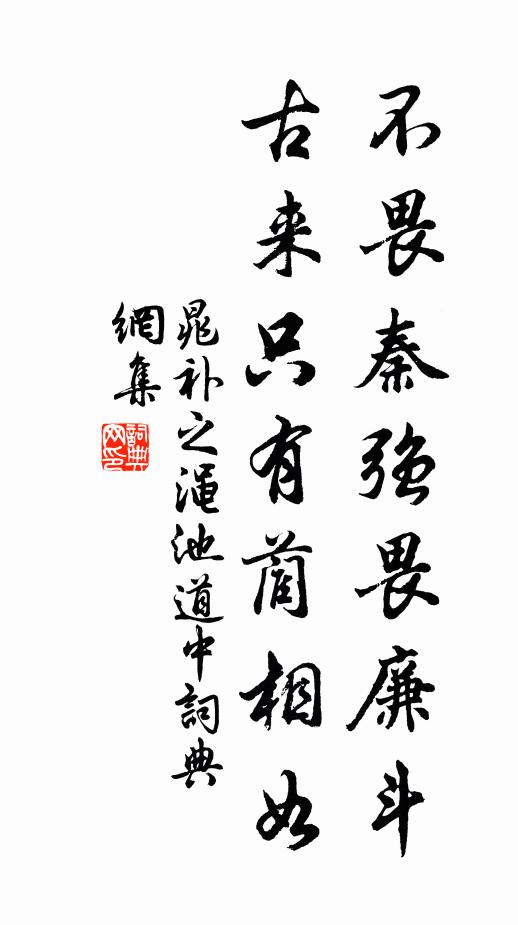 不畏秦強畏廉斗
古来只有藺相如
晁补之澠池道中詞典
網集
詞典
网印